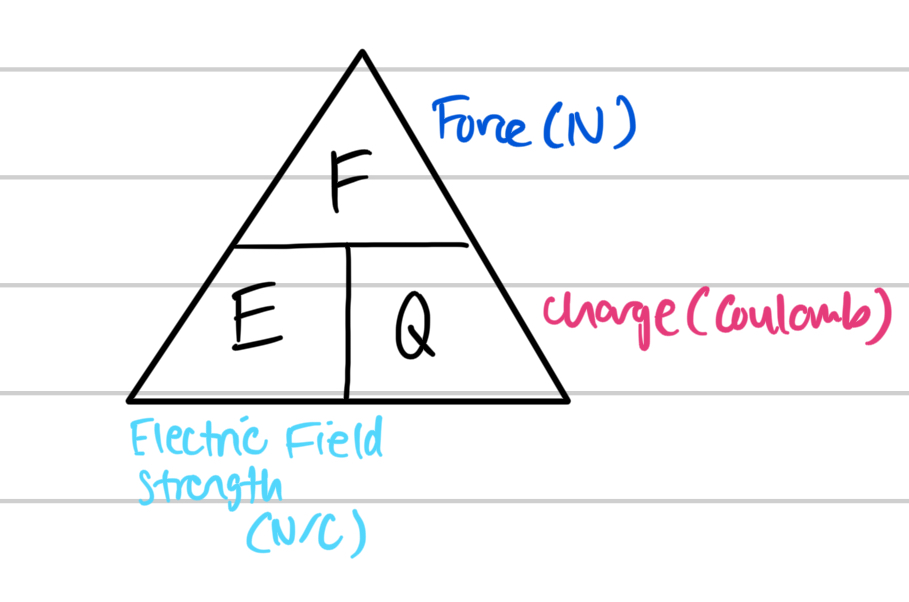 Force (N)
F
E
Q
charge (Coulomb)
Electric Field
Strength
(N/C)